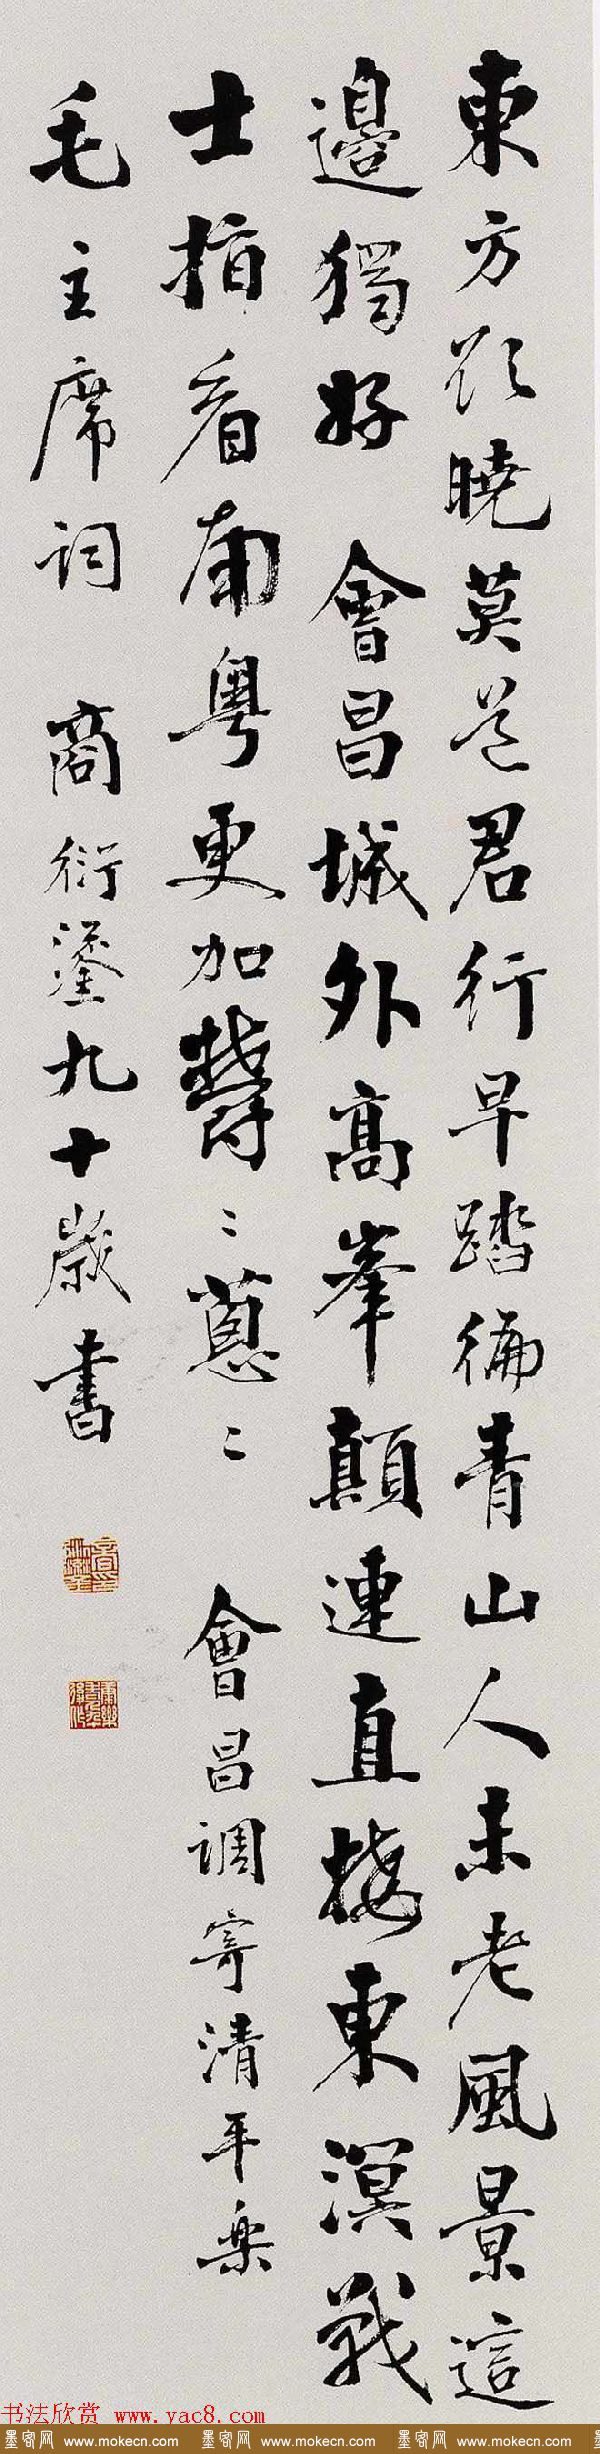 東方欲曉莫道君行早踏徧青山人未老風景這
邊獨好 會昌城外高峯顛連直接東溟戰
士指看南粵更加鬱〻蔥〻 會昌調寄清平樂
毛主席詞 商衍鎏九十歲書
书法欣赏 www.yac8.com
墨客网 www.mokecn.com 墨客网 www.mokecn.com 墨客网 www.mokecn.com